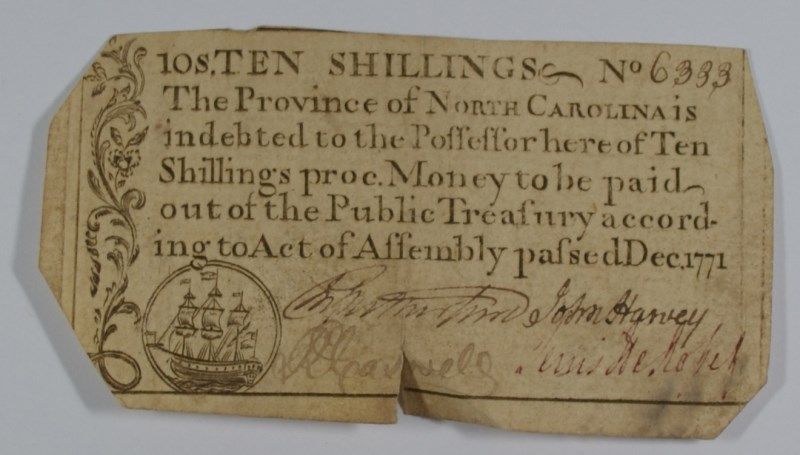 10s. TEN SHILLINGS No 6333
The Province of NORTH CAROLINA is
indebted to the Poſſeſſor here of Ten
Shillings proc. Money to be paid
out of the Public Treaſury accord-
ing to Act of Aſſembly paſsed Dec. 1771
John Harvey
Lewis De Roſset